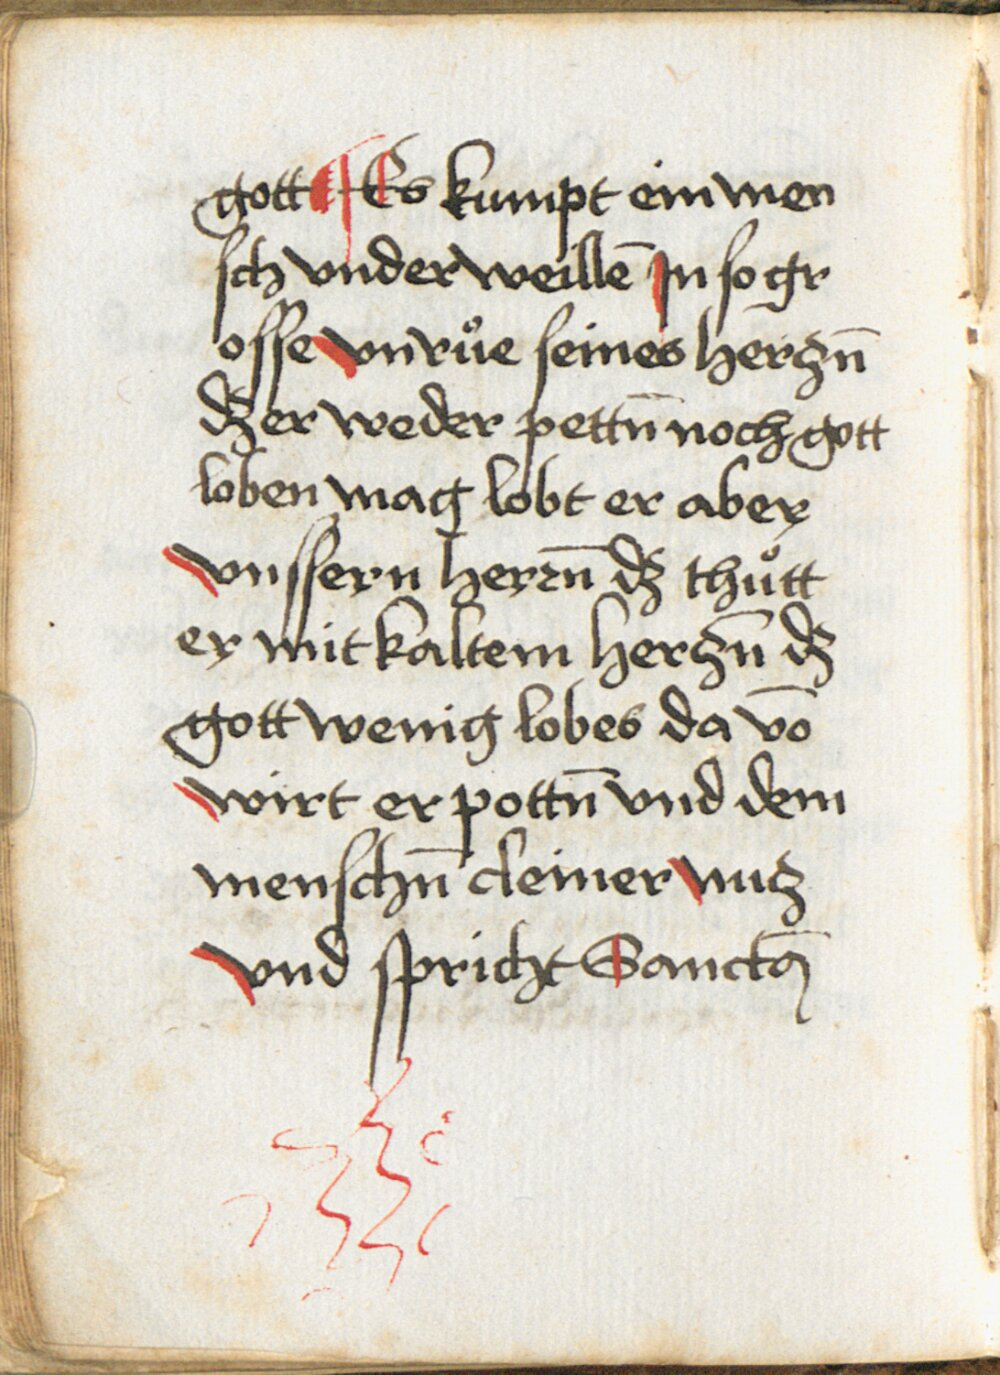 gott ¶ Es kumpt ein men
sch vnder weillē In so gr
osse vnrůe seines herczn̄
dz er weder pettn̄ noch gott
loben mag lobt er aber
vnssern herrn̄ dz thůtt
er mit kaltem herczn̄ dz
gott wenig lobes da vō
wirt er pottn̄ vnd dem
menschn̄ cleiner nucz
vnd spricht Sanctā